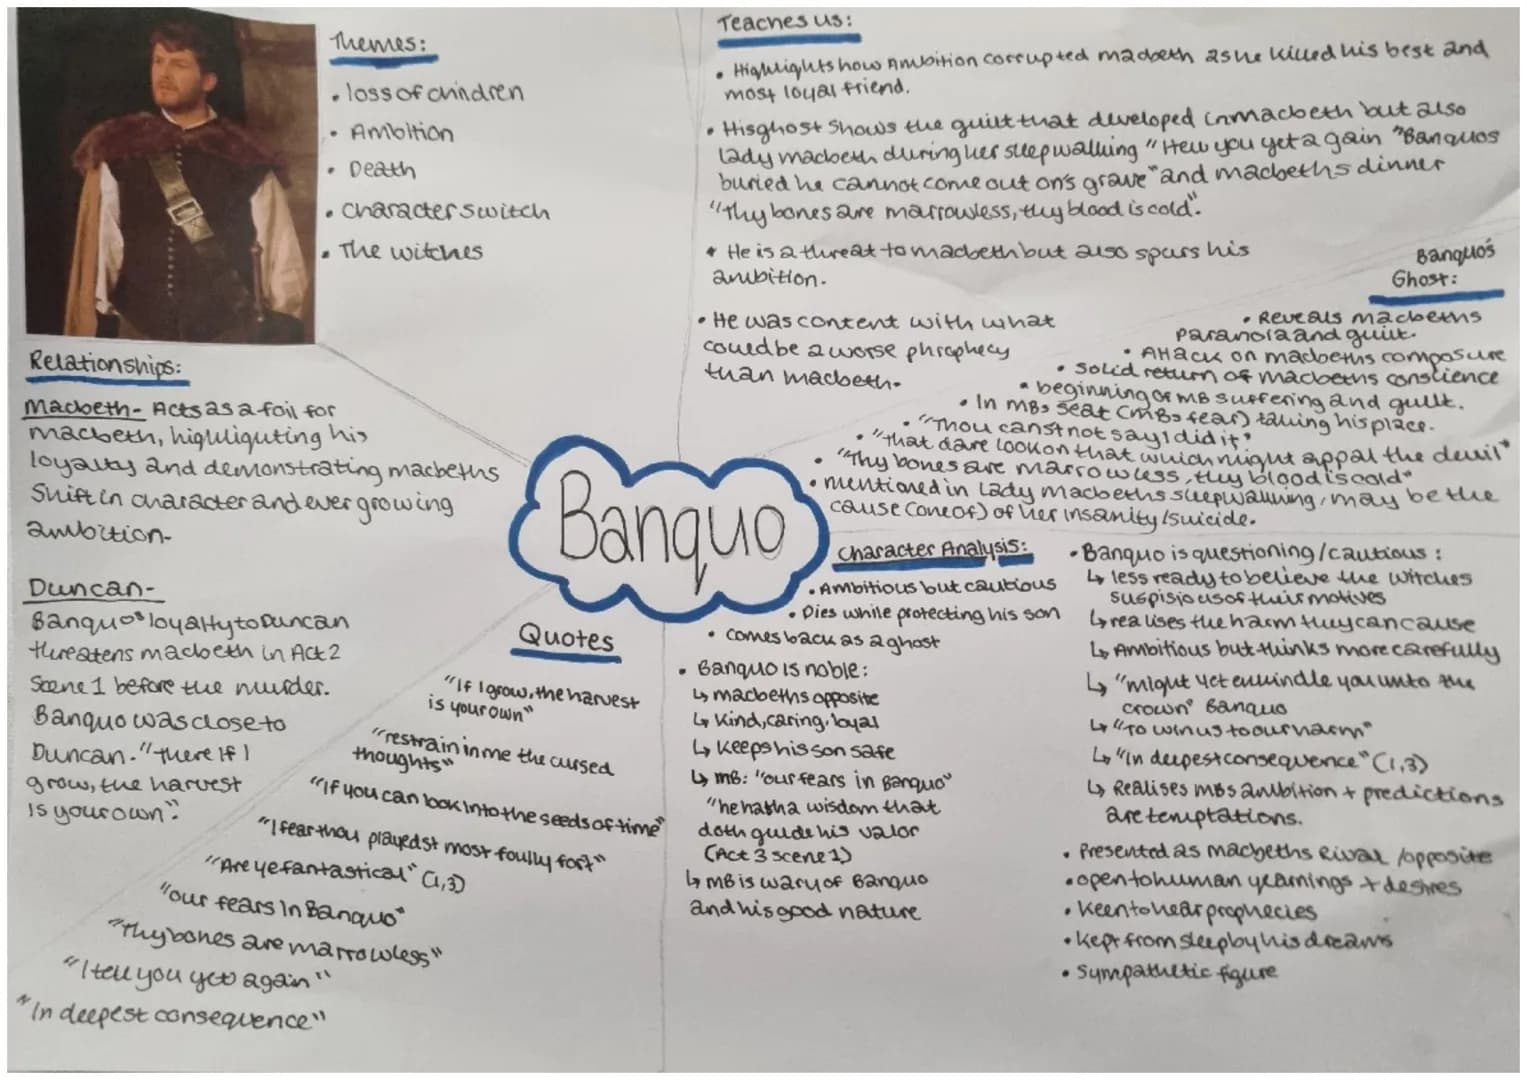 Themes:
• loss of children
• Ambition
• Death
• character switch
• The witches
Teaches us:
• Highlights how Ambition corrupted macbeth as he killed his best and
most loyal friend.
• His ghost shows the guilt that developed in macbeth but also
lady macbeth during her sleepwalking "I tell you yet again "Banquos
buried he cannot come out on's grave" and macbeths dinner
"Thy bones are marrowless, thy blood is cold".
• He is a threat to macbeth but also spurs his
ambition.
• He was content with what
could be a worse phrophecy
than macbeth.
Banquo's
Ghost:
• Reveals macbeths
paranoia and guilt.
• Attack on macbeths composure
• Solid return of macbeths conscience
• beginning of MB suffering and guilt.
• In MBs seat (MBs fear) taking his place.
• "Thou canst not say I did it"
• "That dare look on that which might appal the devil"
• "Thy bones are marrowless, thy blood is cold"
• mentioned in Lady Macbeths sleepwalking, may be the
cause (one of) of her insanity/suicide.
Relationships:
Macbeth- Acts as a foil for
macbeth, highlighting his
loyalty and demonstrating macbeths
Shift in character and ever growing
ambition-
Duncan-
Banquo's loyalty to Duncan
threatens macbeth in Act 2
Scene 1 before the murder.
Banquo was close to
Duncan. "There if I
grow, the harvest
is your own".
Banquo
Quotes
"If I grow, the harvest
is your own"
"restrain in me the cursed
thoughts"
"If you can look into the seeds of time"
"I fear thou playedst most foully for't"
"Are ye fantastical" (1,3)
"our fears in Banquo"
"Thy bones are marrowless"
"I tell you yet again"
"In deepest consequence"
Character Analysis:
• Ambitious but cautious
• Dies while protecting his son
• comes back as a ghost
• Banquo is noble:
↳ macbeths opposite
↳ Kind, caring, loyal
↳ Keeps his son safe
↳ MB: "our fears in Banquo"
"he hath a wisdom that
doth guide his valor
(Act 3 scene 1)
↳ MB is wary of Banquo
and his good nature
• Banquo is questioning/cautious:
↳ less ready to believe the witches
suspisious of their motives
↳ realises the harm they can cause
↳ Ambitious but thinks more carefully
↳ "might yet enkindle you unto the
crown" Banquo
↳ "To win us to our harm"
↳ "In deepest consequence" (1,3)
↳ Realises MBs ambition + predictions
are temptations.
• Presented as macbeths Rival/opposite
• open to human yearnings + desires
• Keen to hear prophecies
• Kept from sleep by his dreams
• Sympathetic figure